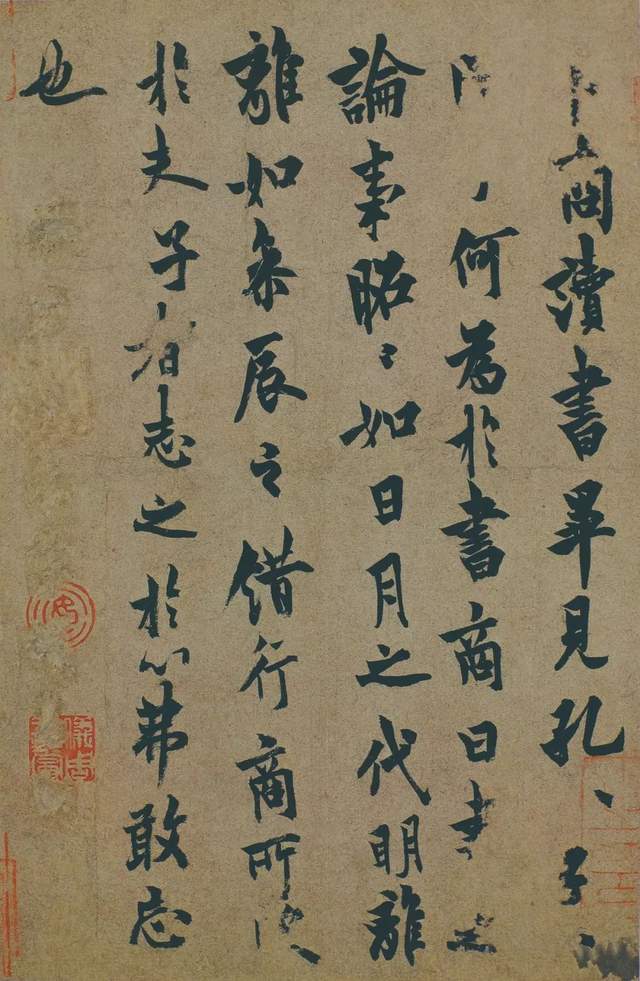 讀書畢見孔〻子〻
何為於書商曰書之
論事昭〻如日月之代明離
離如參辰之錯行商所
於夫子者志之於心弗敢忘
也